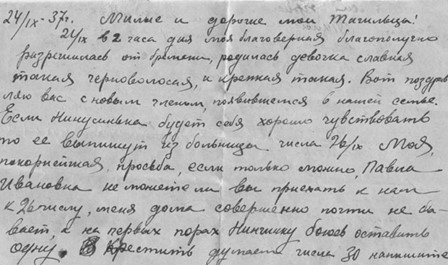 24/IX-37г. Милые и дорогие мои Тагильцы!
21/IX в 2 часа дня моя благоверная благополучно
разрешилась от бремени, родилась девочка славная
такая черноволосая, и крепкая такая. Вот поздрав
ляю вас с новым членом, появившемся в нашей семье.
Если Нинусинька будет себя хорошо чувствовать
то ее выпишут из больницы числа 26/IX Моя,
покорнейшая просьба, если только можно, Павла
Ивановна не можете ли вы приехать к нам
к 26 числу, меня дома совершенно почти не бы-
вает, а на первых порах Нинчинку боюсь оставить
одну. Крестить думаем числа 30 напишите